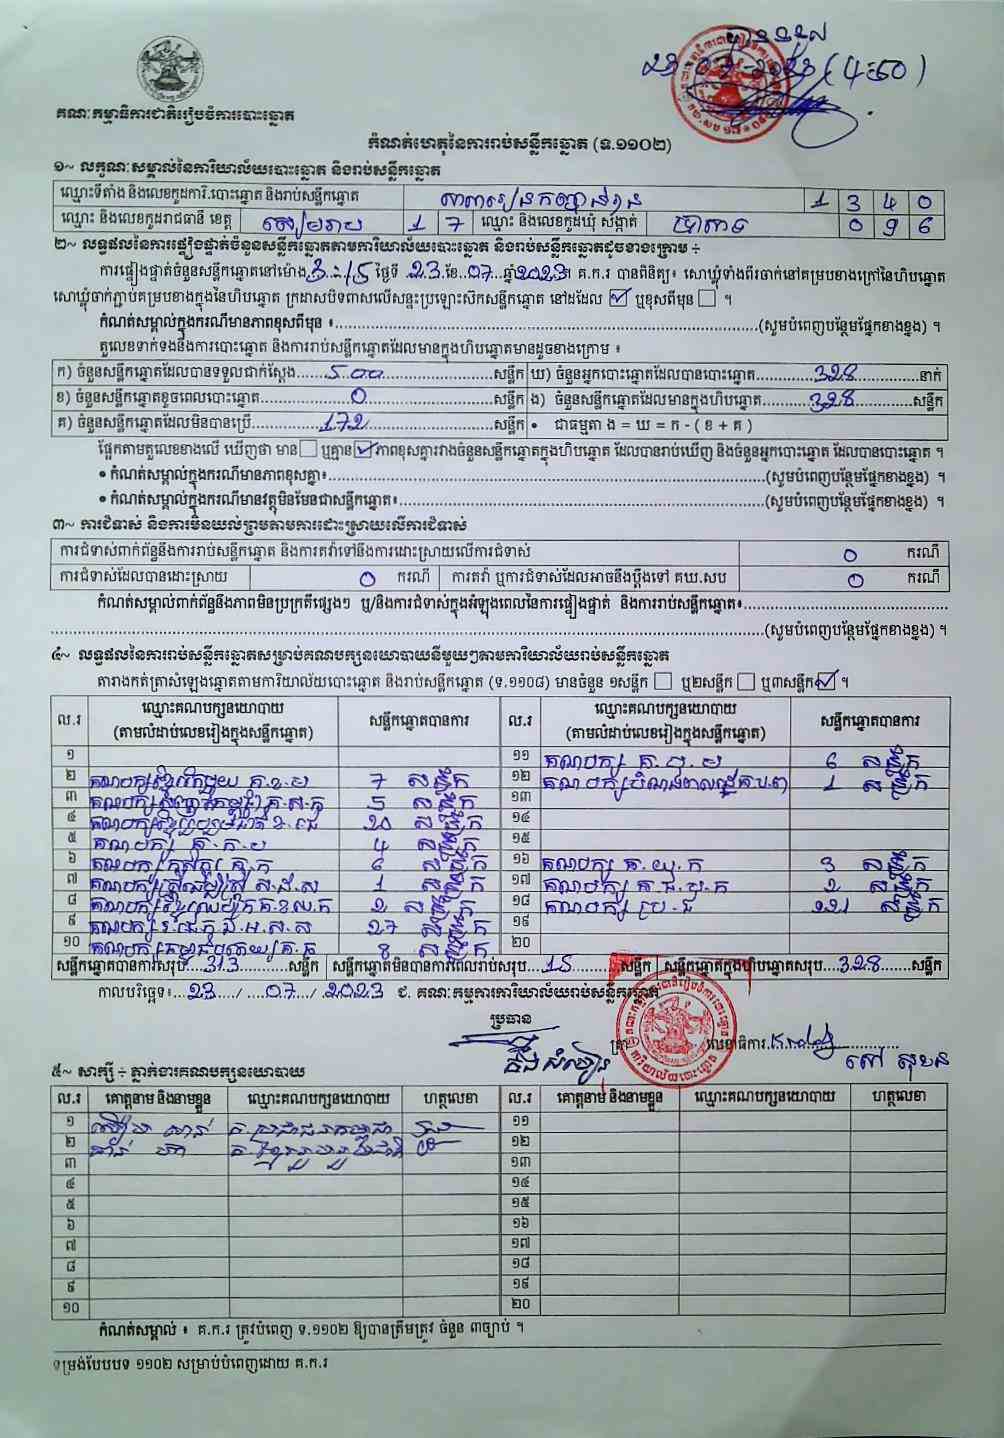 បានទទួល
23-07-2023 (4:50)
គណៈកម្មាធិការជាតិរៀបចំការបោះឆ្នោត
កំណត់ហេតុនៃការរាប់សន្លឹកឆ្នោត (ទ.១១០២)
១~ លក្ខណៈសម្គាល់នៃការិយាល័យបោះឆ្នោត និងរាប់សន្លឹកឆ្នោត
ឈ្មោះទីតាំង និងលេខកូដការិ.បោះឆ្នោត និងរាប់សន្លឹកឆ្នោត 1 3 4 0
ឈ្មោះ និងលេខកូដរាជធានី ខេត្ត សៀមរាប 1 7 ឈ្មោះ និងលេខកូដឃុំ សង្កាត់ 0 9 6
២~ លទ្ធផលនៃការផ្ទៀងផ្ទាត់ចំនួនសន្លឹកឆ្នោតតាមការិយាល័យបោះឆ្នោត និងរាប់សន្លឹកឆ្នោតដូចខាងក្រោម ÷
ការផ្ទៀងផ្ទាត់ចំនួនសន្លឹកឆ្នោតនៅម៉ោង 3:15 ថ្ងៃទី 23 ខែ 07 ឆ្នាំ 2023 គ.ក.រ បានពិនិត្យ៖ សោឃ្លុំទាំងពីរចាក់នៅគម្របខាងក្រៅនៃហិបឆ្នោត
សោឃ្លុំចាក់ភ្ជាប់គម្របខាងក្នុងនៃហិបឆ្នោត ក្រដាសបិទពាសលើសន្ទះប្រឡោះសិកសន្លឹកឆ្នោត នៅដដែល ☑ ឬខុសពីមុន ☐ ។
កំណត់សម្គាល់ក្នុងករណីមានភាពខុសពីមុន ៖ (សូមបំពេញបន្ថែមផ្នែកខាងខ្នង) ។
តួលេខទាក់ទងនឹងការបោះឆ្នោត និងការរាប់សន្លឹកឆ្នោតដែលមានក្នុងហិបឆ្នោតមានដូចខាងក្រោម ៖
ក) ចំនួនសន្លឹកឆ្នោតដែលបានទទួលជាក់ស្តែង 500 សន្លឹក ឃ) ចំនួនអ្នកបោះឆ្នោតដែលបានបោះឆ្នោត 328 នាក់
ខ) ចំនួនសន្លឹកឆ្នោតខូចពេលបោះឆ្នោត 0 សន្លឹក ង) ចំនួនសន្លឹកឆ្នោតដែលមានក្នុងហិបឆ្នោត 328 សន្លឹក
គ) ចំនួនសន្លឹកឆ្នោតដែលមិនបានប្រើ 172 សន្លឹក • ជាធម្មតា ង = ឃ = ក - ( ខ + គ )
ផ្អែកតាមតួលេខខាងលើ ឃើញថា មាន ☐ ឬគ្មាន ☑ ភាពខុសគ្នារវាងចំនួនសន្លឹកឆ្នោតក្នុងហិបឆ្នោត ដែលបានរាប់ឃើញ និងចំនួនអ្នកបោះឆ្នោត ដែលបានបោះឆ្នោត ។
• កំណត់សម្គាល់ក្នុងករណីមានភាពខុសគ្នា៖ (សូមបំពេញបន្ថែមផ្នែកខាងខ្នង) ។
• កំណត់សម្គាល់ក្នុងករណីមានវត្ថុមិនមែនជាសន្លឹកឆ្នោត៖ (សូមបំពេញបន្ថែមផ្នែកខាងខ្នង) ។
៣~ ការជំទាស់ និងការមិនយល់ព្រមតាមការដោះស្រាយលើការជំទាស់
ការជំទាស់ពាក់ព័ន្ធនឹងការរាប់សន្លឹកឆ្នោត និងការតវ៉ាទៅនឹងការដោះស្រាយលើការជំទាស់ 0 ករណី
ការជំទាស់ដែលបានដោះស្រាយ 0 ករណី ការតវ៉ា ឬការជំទាស់ដែលអាចនឹងប្តឹងទៅ គឃ.សប 0 ករណី
កំណត់សម្គាល់ពាក់ព័ន្ធនឹងភាពមិនប្រក្រតីផ្សេងៗ ឬ/និងការជំទាស់ក្នុងអំឡុងពេលនៃការផ្ទៀងផ្ទាត់ និងការរាប់សន្លឹកឆ្នោត៖
(សូមបំពេញបន្ថែមផ្នែកខាងខ្នង) ។
៤~ លទ្ធផលនៃការរាប់សន្លឹកឆ្នោតសម្រាប់គណបក្សនយោបាយនីមួយៗតាមការិយាល័យរាប់សន្លឹកឆ្នោត
តារាងកត់ត្រាសំឡេងឆ្នោតតាមការិយាល័យបោះឆ្នោត និងរាប់សន្លឹកឆ្នោត (ទ.១១០៨) មានចំនួន ១សន្លឹក ☐ ឬ២សន្លឹក ☐ ឬ៣សន្លឹក ☑ ។
ល.រ ឈ្មោះគណបក្សនយោបាយ (តាមលំដាប់លេខរៀងក្នុងសន្លឹកឆ្នោត) សន្លឹកឆ្នោតបានការ ល.រ ឈ្មោះគណបក្សនយោបាយ (តាមលំដាប់លេខរៀងក្នុងសន្លឹកឆ្នោត) សន្លឹកឆ្នោតបានការ
១ ១១ គណបក្ស 6 សន្លឹក
២ គណបក្ស 7 សន្លឹក ១២ គណបក្ស 1 សន្លឹក
៣ គណបក្ស 5 សន្លឹក ១៣
៤ គណបក្ស 20 សន្លឹក ១៤
៥ គណបក្ស 4 សន្លឹក ១៥
៦ គណបក្ស 6 សន្លឹក ១៦ គណបក្ស 3 សន្លឹក
៧ គណបក្ស 1 សន្លឹក ១៧ គណបក្ស 2 សន្លឹក
៨ គណបក្ស 2 សន្លឹក ១៨ គណបក្ស 221 សន្លឹក
៩ គណបក្ស 27 សន្លឹក ១៩
១០ គណបក្ស 8 សន្លឹក ២០
សន្លឹកឆ្នោតបានការសរុប 313 សន្លឹក សន្លឹកឆ្នោតមិនបានការពេលរាប់សរុប 15 សន្លឹក សន្លឹកឆ្នោតក្នុងហិបឆ្នោតសរុប 328 សន្លឹក
កាលបរិច្ឆេទ៖ 23 / 07 / 2023 ជ. គណៈកម្មការការិយាល័យរាប់សន្លឹកឆ្នោត
ប្រធាន
ត្រា លេខាធិការ
៥~ សាក្សី ÷ ភ្នាក់ងារគណបក្សនយោបាយ
ល.រ គោត្តនាម និងនាមខ្លួន ឈ្មោះគណបក្សនយោបាយ ហត្ថលេខា ល.រ គោត្តនាម និងនាមខ្លួន ឈ្មោះគណបក្សនយោបាយ ហត្ថលេខា
១ គ.ប្រជាជនកម្ពុជា ១១
២ ១២
៣ ១៣
៤ ១៤
៥ ១៥
៦ ១៦
៧ ១៧
៨ ១៨
៩ ១៩
១០ ២០
កំណត់សម្គាល់ ៖ គ.ក.រ ត្រូវបំពេញ ទ.១១០២ ឱ្យបានត្រឹមត្រូវ ចំនួន ៣ច្បាប់ ។
ទម្រង់បែបបទ ១១០២ សម្រាប់បំពេញដោយ គ.ក.រ